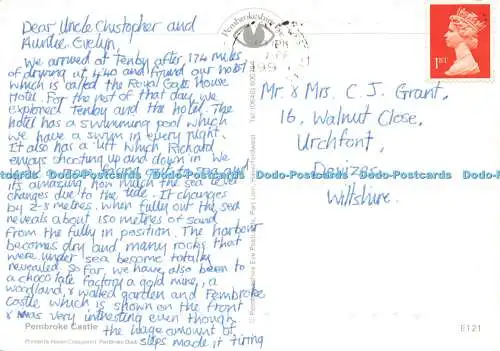 Dear Uncle Christopher and
Auntie Evelyn,
we arrived at Tenby after 174 miles
of driving at 4.40 and found our hotel
which is called the Royal Gate House
Hotel. For the rest of that day we
explored Tenby and the hotel. The
hotel has a swimming pool which
we have a swim in every night.
It also has a lift which Richard
enjoys shooting up and down in. We
facing out to sea and
its amazing how much the sea level
changes due to the tide. It changes
by 2-3 metres. When fully out the sea
reveals about 150 metres of sand
from the fully in position. The harbour
becomes dry and many rocks that
were under sea become totally
revealed. So far, we have also been to
a chocolate factory, a gold mine, a
woodland, walled garden and Pembroke
Castle which is shown on the front
& was very interesting even though
the huge amount of
steps made it tiring
Pembroke Castle
Pembrokeshire
1ST
Mr & Mrs. C. J. Grant,
16, Walnut Close,
Urchfont,
Devizes
Wiltshire.
Dodo-Postcards Dodo-Postcards Dodo-Postcards Dodo-Postcards Dodo-Postcards Dodo-Postcards
E121